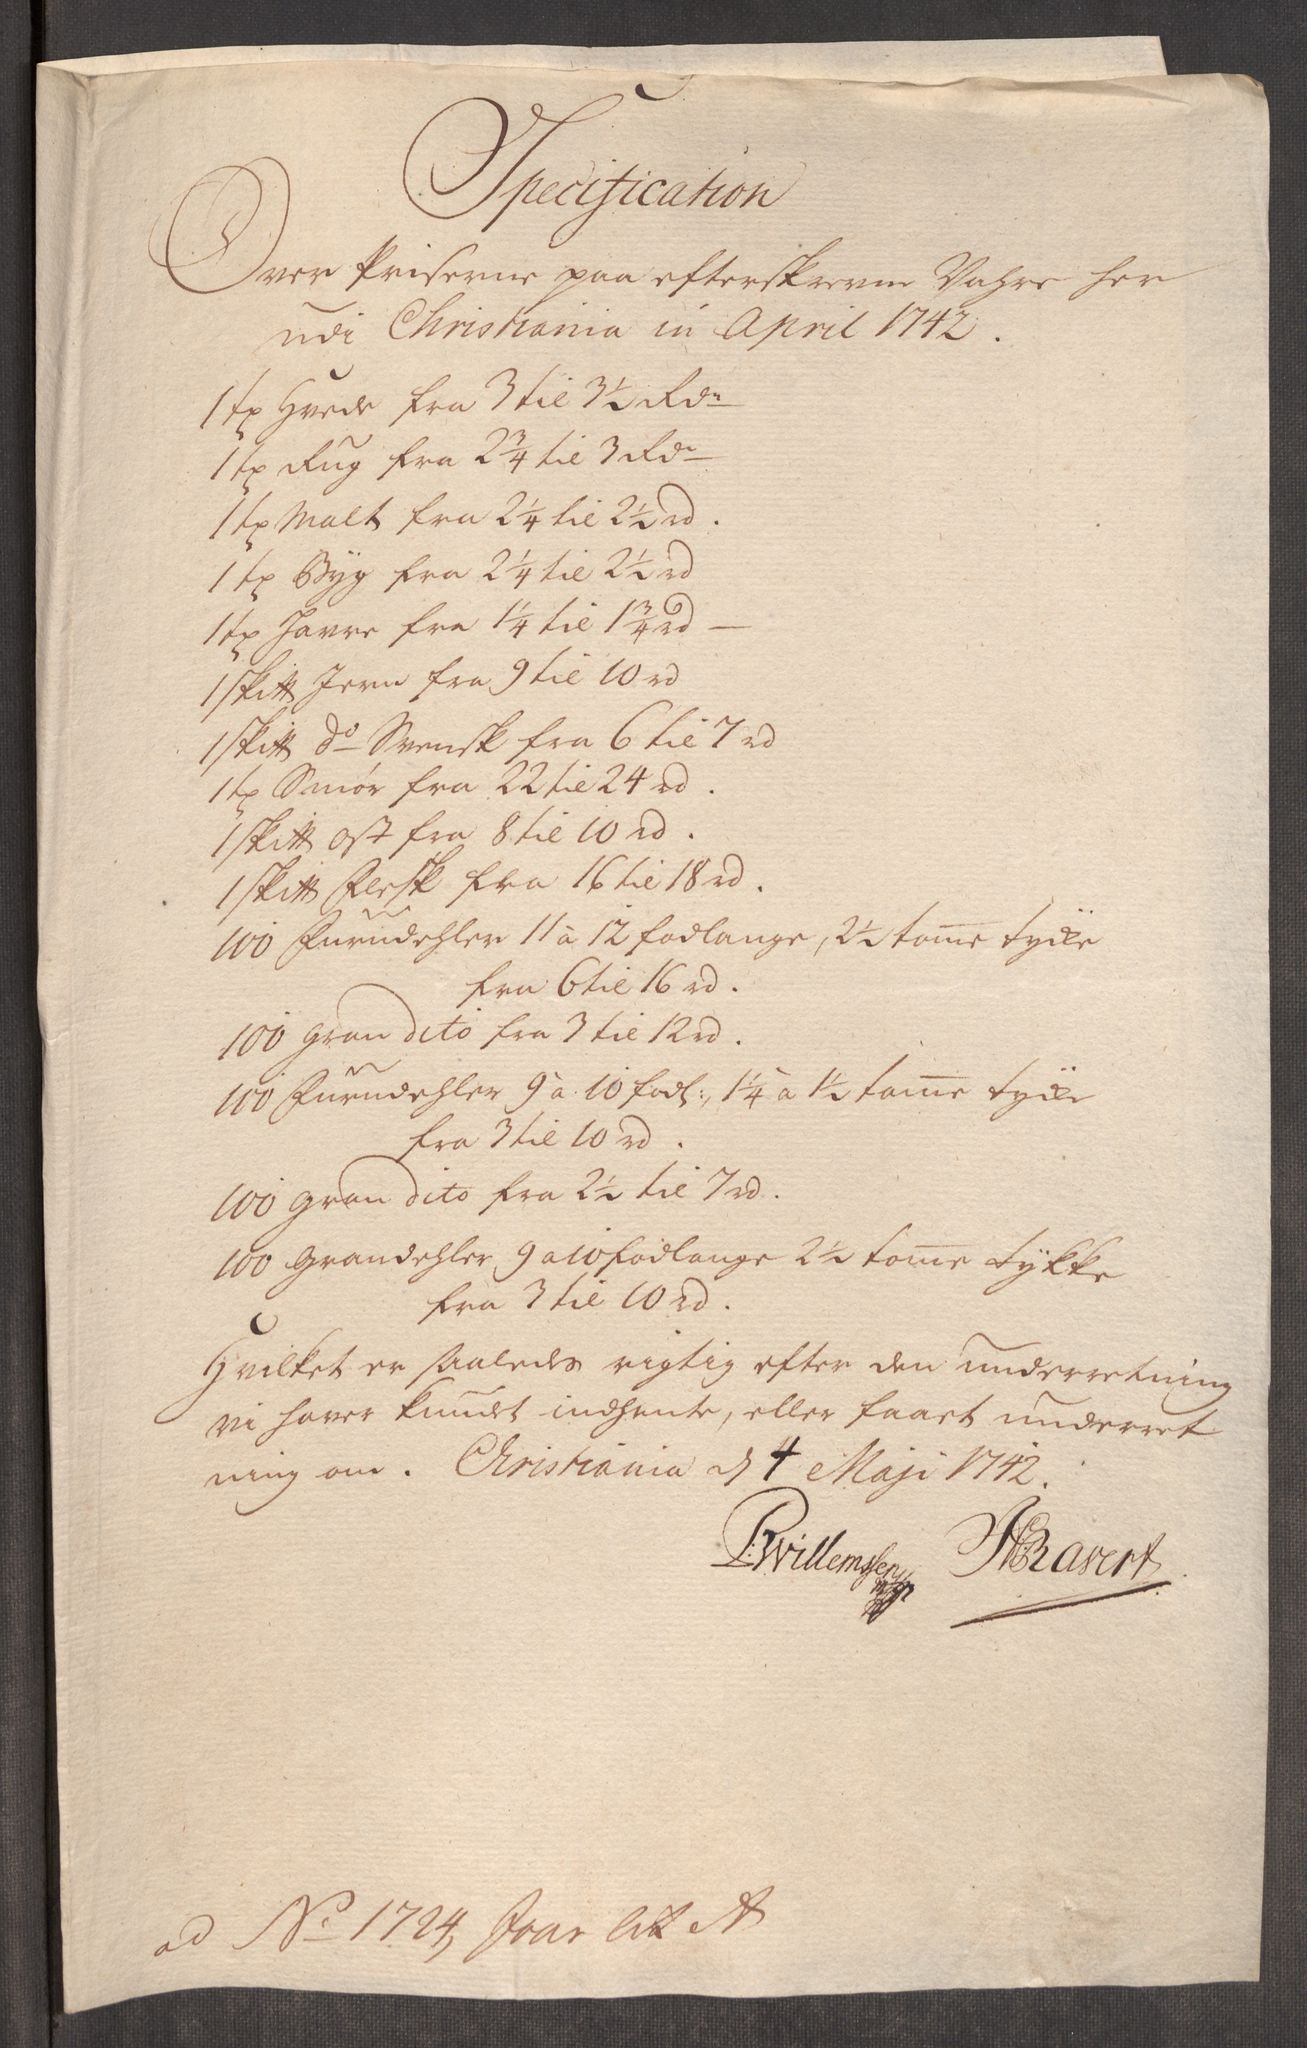 Specification
Over Priserne paa efterskrevne Vahre her
udi Christiania in April 1742.
1 tp Hvede fra 3 til 3½ Rdr
1 tp Rug fra 2¾ til 3 Rdr
1 tp Malt fra 2¼ til 2½ rd.
1 tp Byg fra 2¼ til 2½ rd
1 tp Havre fra 1¼ til 1¾ rd
1 skitt Jern fra 9 til 10 rd
1 skitt do Svensk fra 6 til 7 rd
1 tp Smör fra 22 til 24 rd.
1 skitt ost fra 8 til 10 rd.
1 skitt Flesk fra 16 til 18 rd.
100 Furudehler 11 a 12 fodlange, 2½ tomme tycke
fra 6 til 16 rd.
100 gran dito fra 3 til 12 rd.
100 Furudehler 9 a 10 fodl:, 1¼ a 1½ tomme tycke
fra 3 til 10 rd.
100 gran dito fra 2½ til 7 rd.
100 Grandehler 9 a 10 fodlange 2½ tomme tykke
fra 3 til 10 rd.
Hvilket er saaledes rigtig efter den underretning
vi haver kundet indhente, eller faaet underret
ning om. Christiania d 4 Maji 1742.
P:Willemssen Ravert
ad No 1724, Foar lit A